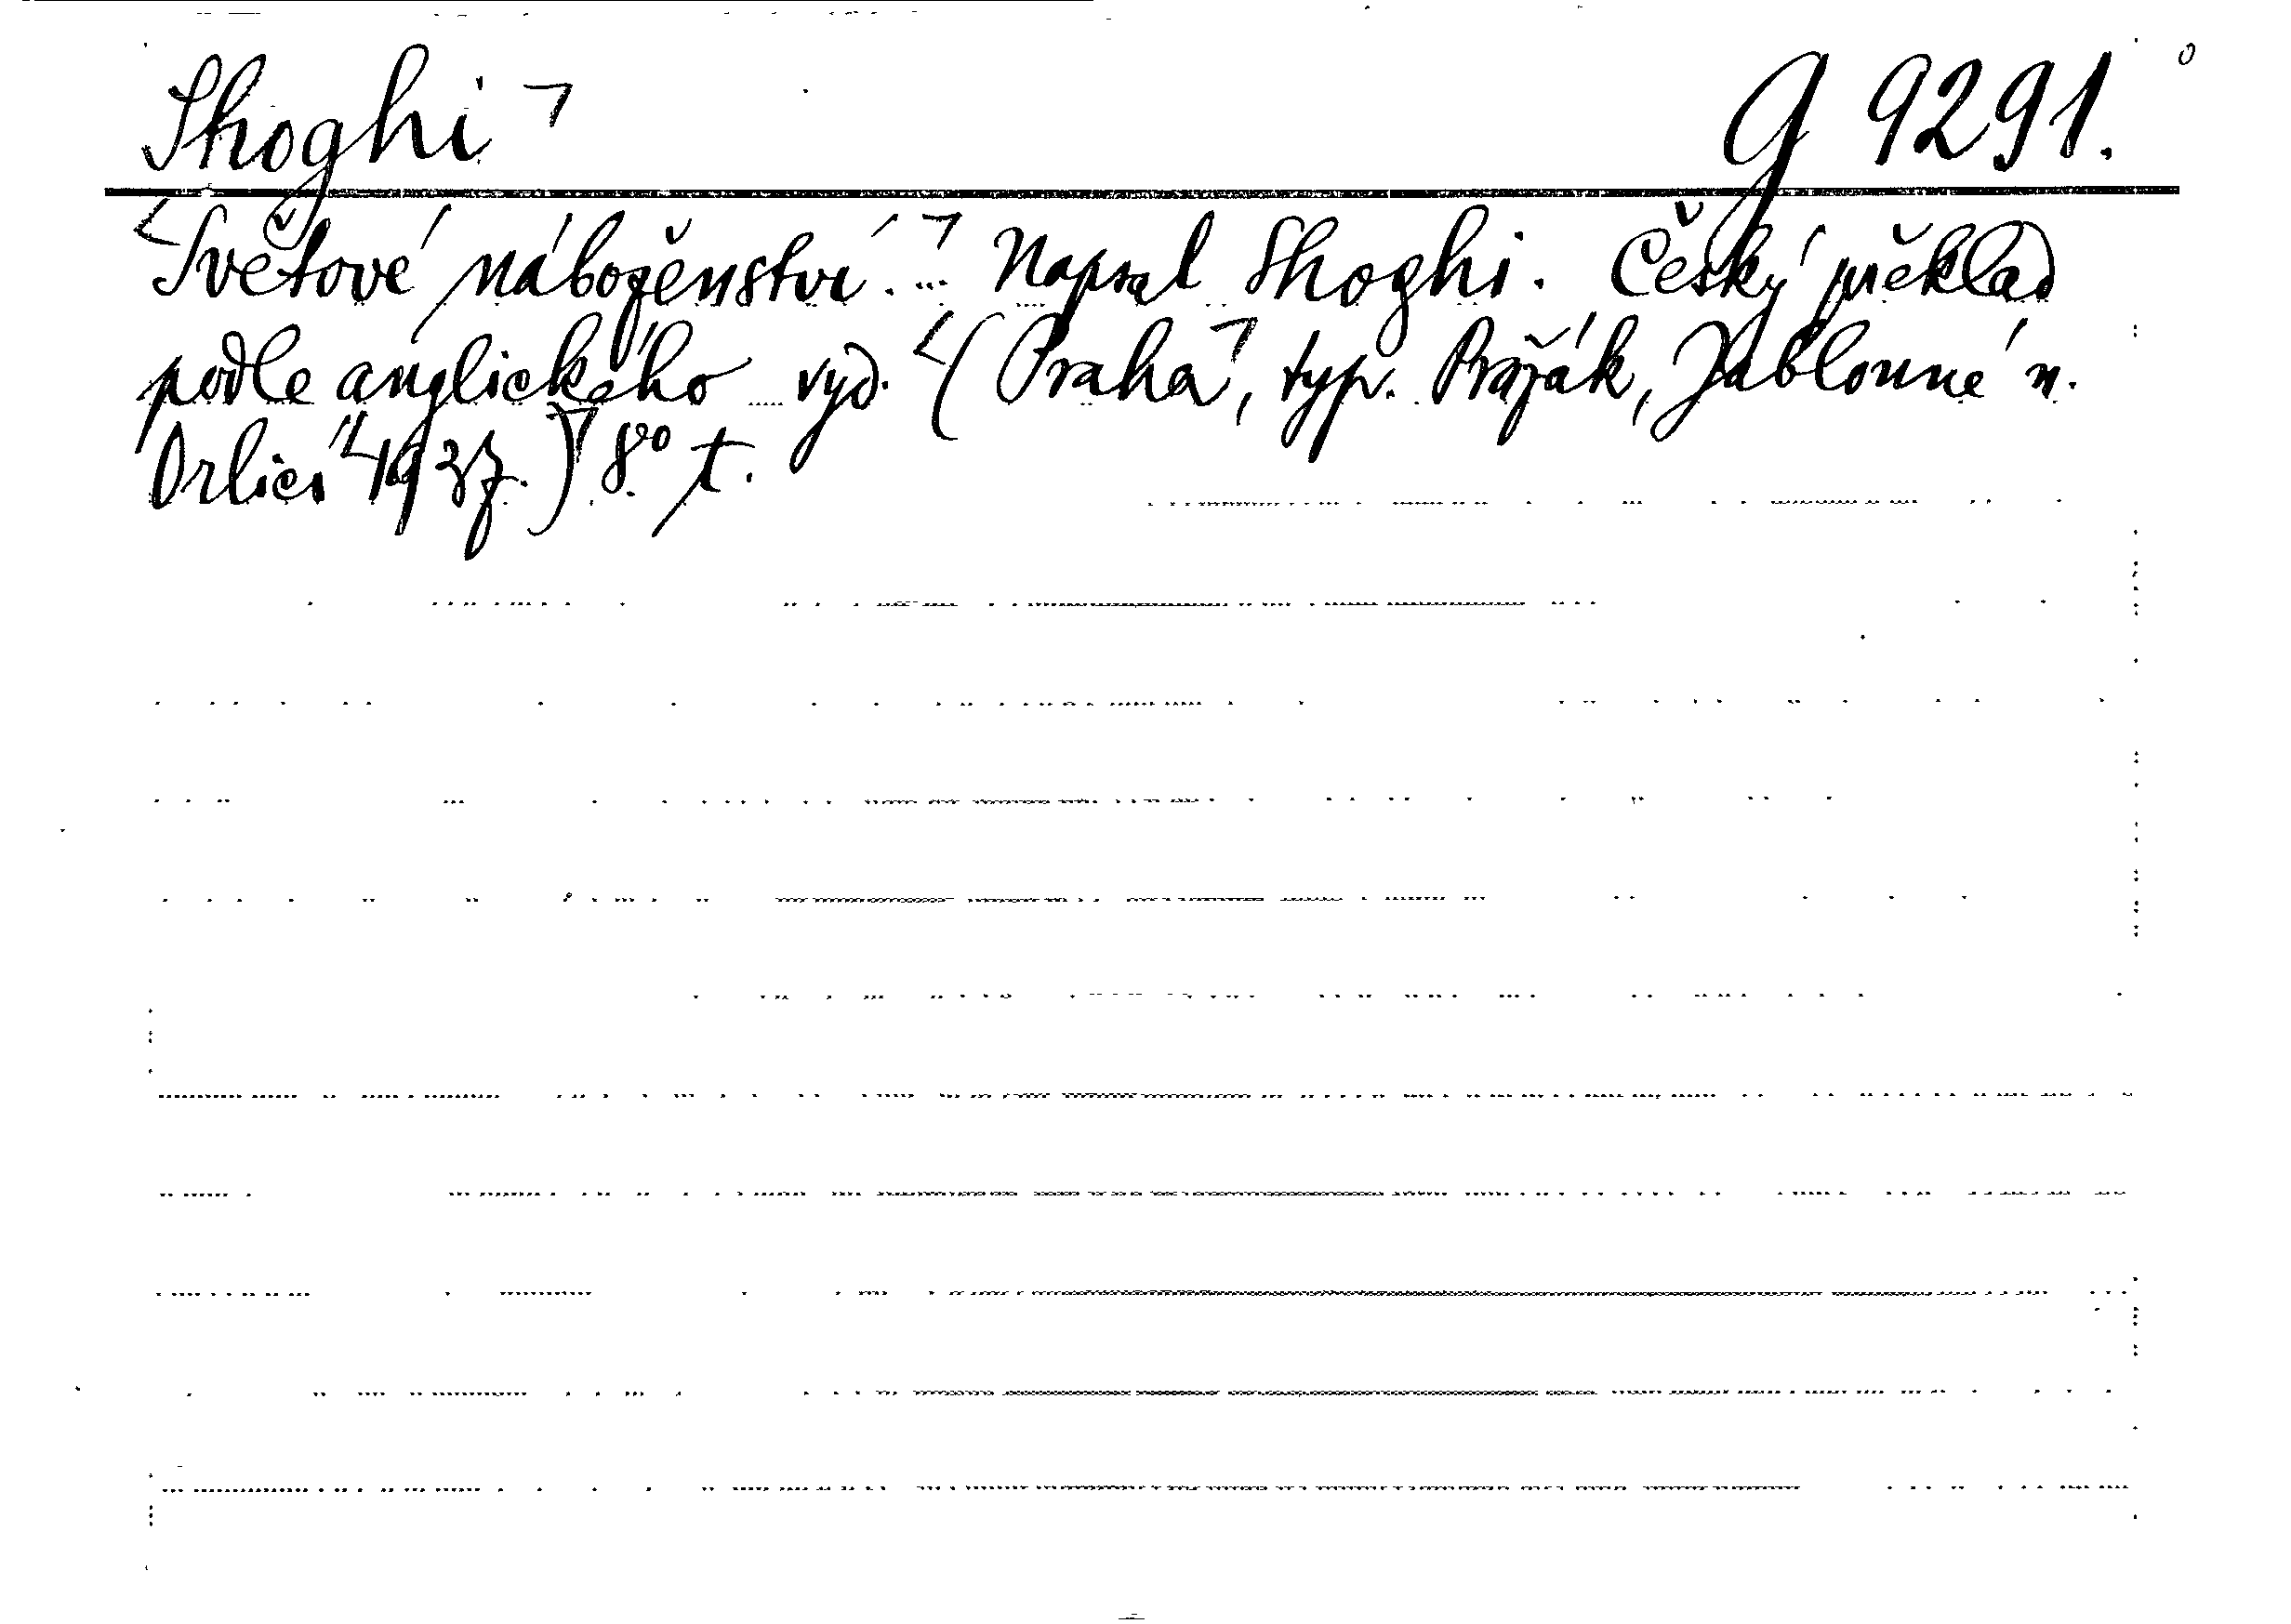 Shoghi ¬ G 9291.
Světové náboženství. ... Napsal Shoghi. Český překlad
podle anglického vyd. (Praha, typ. Pražák, Jablonné n.
Orlicí 1937.) 8° t.